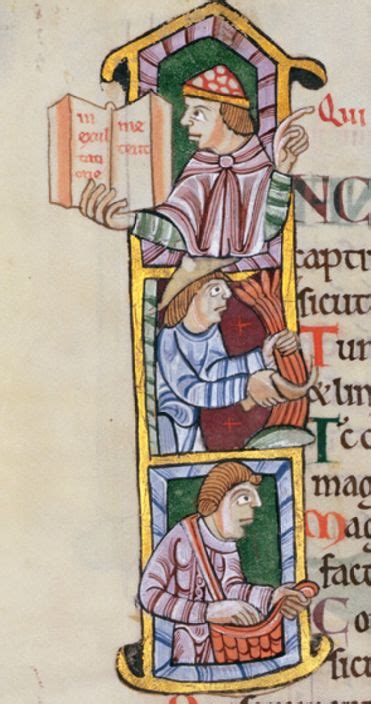 in
exul
tati
one
me
tent
Qui
NC
capti
sicut
Tun
&lin
T
mag
Mag
fact
Co
sicu